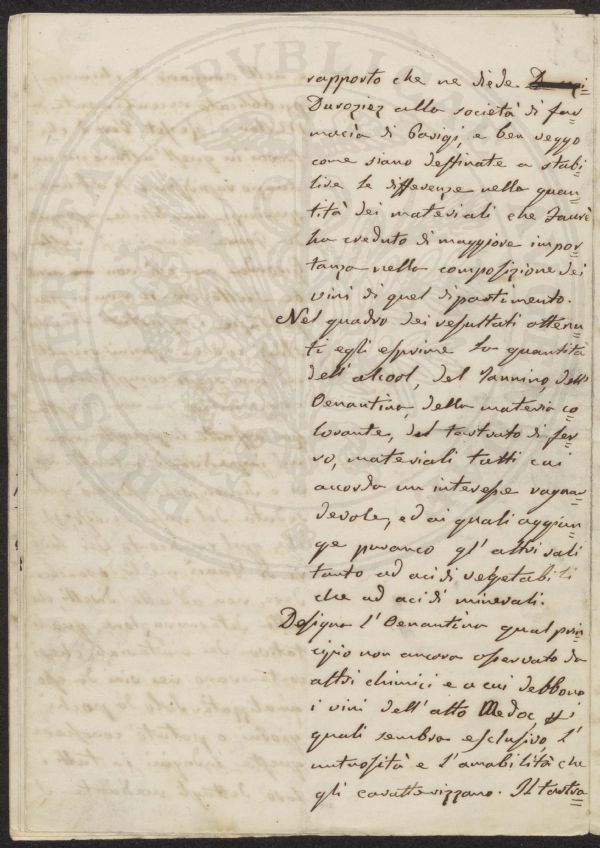 rapporto che ne diede
Duroziez alla società di far=
macia di Parigi, e ben veggo
come siano destinate a stabi=
lire le differenze nella quan=
tità dei materiali che Faurè
ha creduto di maggiore impor=
tanza nella composizione dei
vini di quel dipartimento.
Nel quadro dei resultati ottenu=
ti egli esprime la quantità
dell'alcool, del Tannino, dell'
Oenantina, della materia co=
lorante, del tartrato di fer=
ro, materiali tutti cui
accorda un interesse ragguar=
devole, ed ai quali aggiun=
ge puranco gl'altri sali
tanto ad acidi vegetabili
che ad acidi minerali.
Designa l'Oenantina qual prin=
cipio non ancora osservato da
altri chimici e a cui debbono
i vini dell'alto Medoc, ai
quali sembra esclusivo, l'
untuosità e l'amabilità che
gli caratterizzano. Il tartra=
PVBLICA